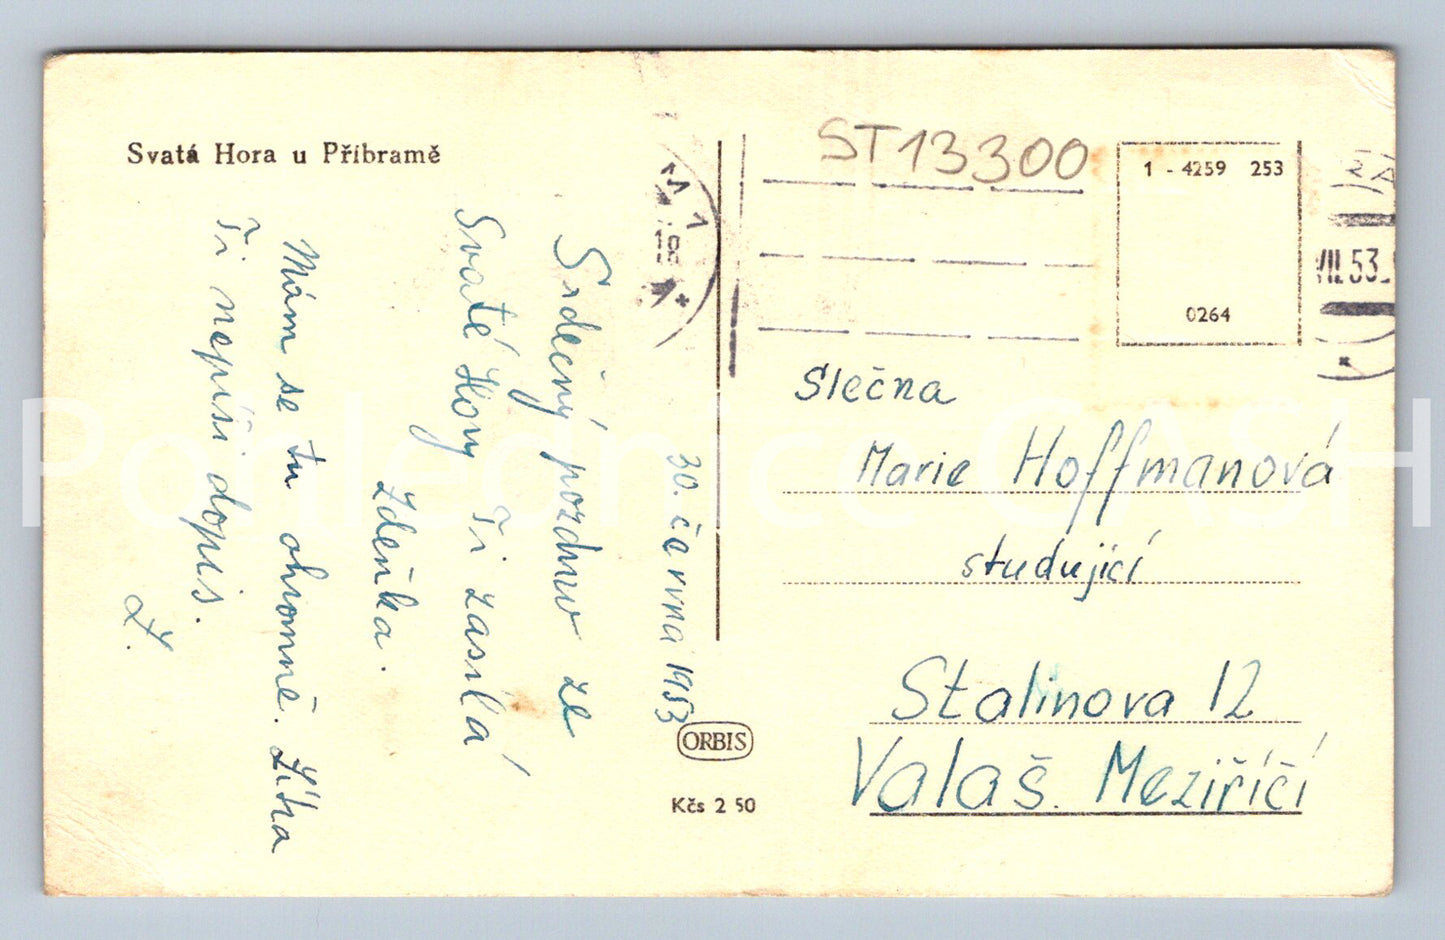 Svatá Hora u Příbramě
30. června 1953
Srdečný pozdrav ze
Svaté Hory Ti zasílá
Zdeňka.
Mám se tu ohromně. Líha
Ti nepíši dopis.
Z.
ORBIS
Kčs 2 50
ST13300
1 - 4259 253
0264
18
VII.53
Slečna
Marie Hoffmanová
studující
Stalinova 12
Valaš. Meziříčí
Pohlednice CASH